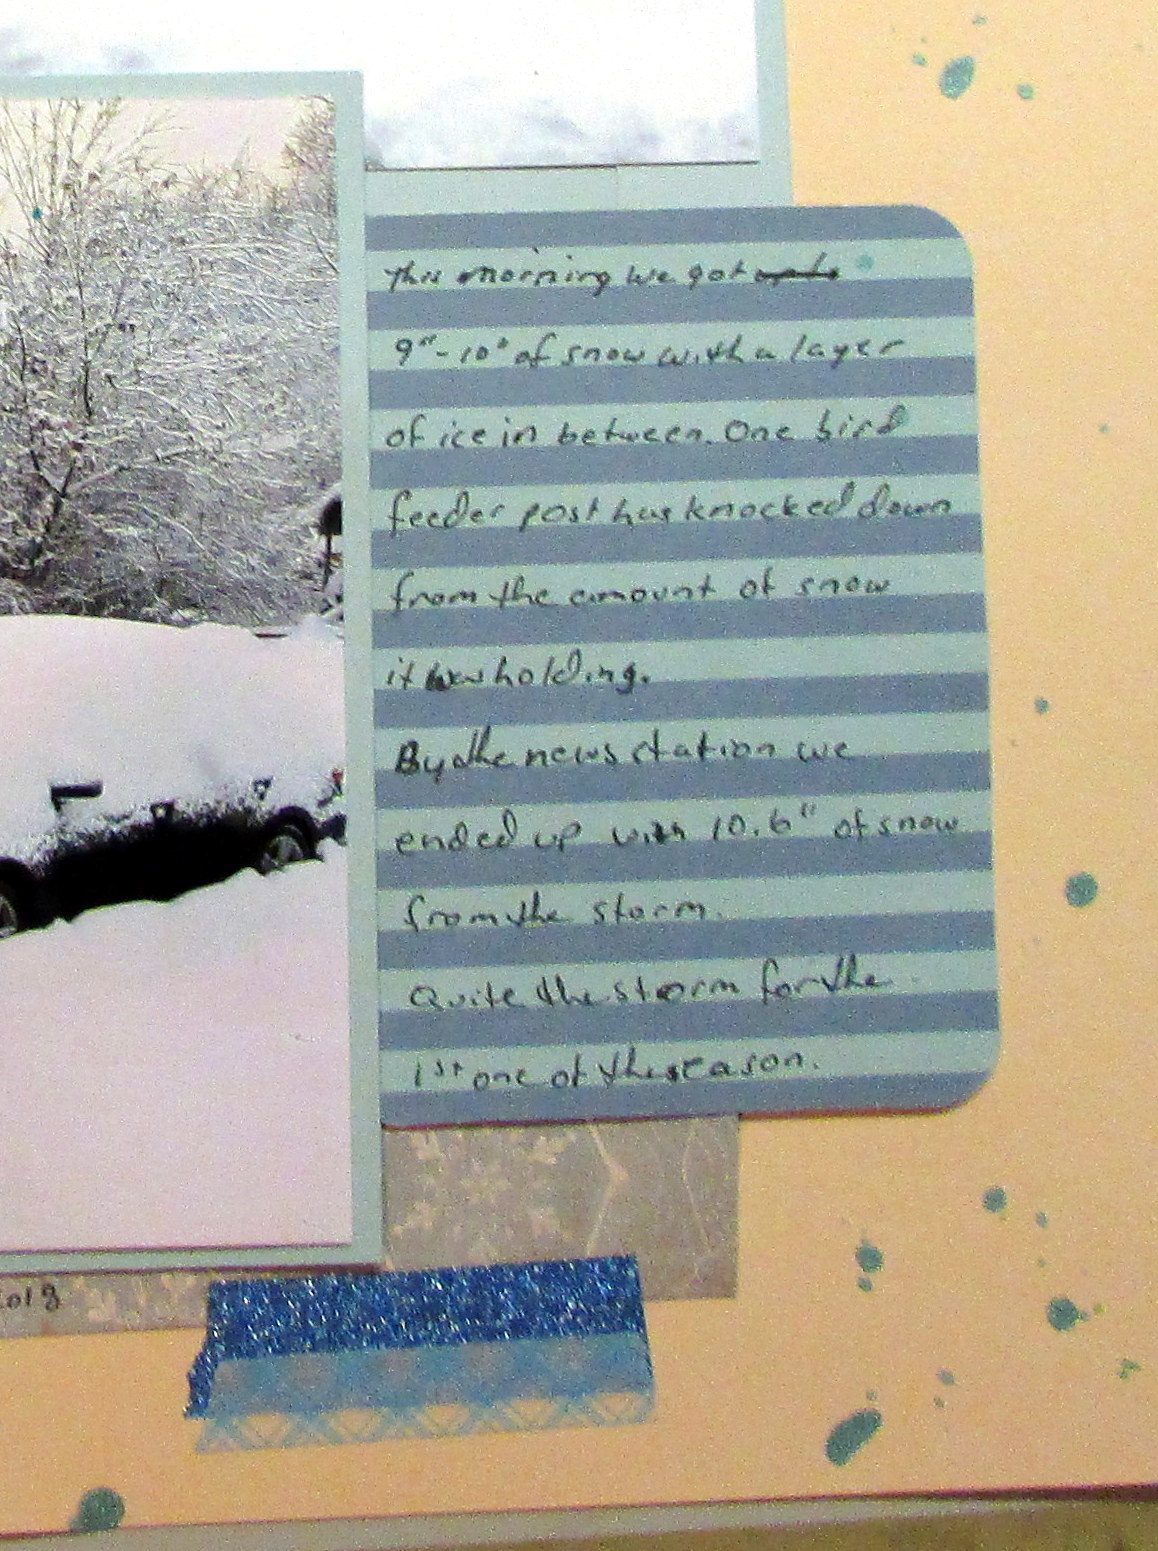 This morning we got
9"-10" of snow with a layer
of ice in between. One bird
feeder post has knocked down
from the amount of snow
it was holding.
By the news station we
ended up with 10.6" of snow
from the storm.
Quite the storm for the
1st one of the season.
2018